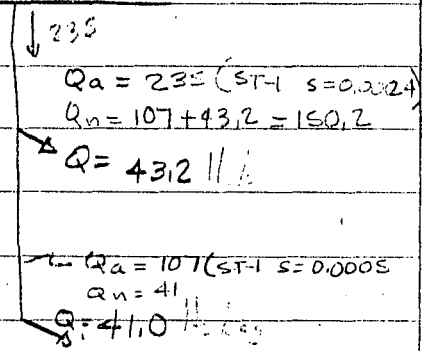 235
Qa = 235 (ST-1 S=0.0024)
Qn = 107+43,2 = 150,2
Q= 43,2
Qa = 107 (ST-1 S=0.0005
Qn = 41
Q= 41,0